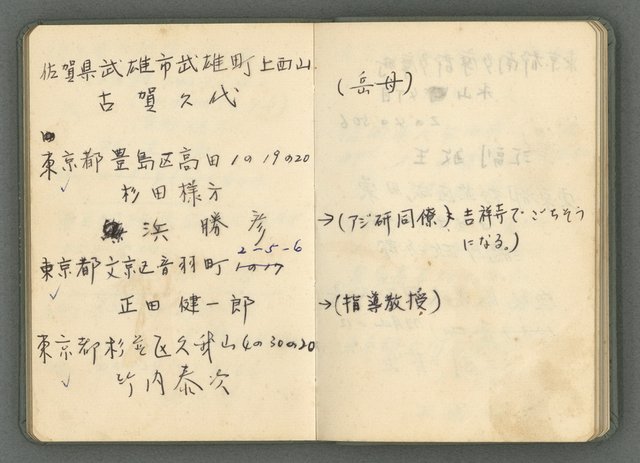 佐賀県武雄市武雄町上西山
古賀久代
(岳母)
東京都豊島区高田1の19の20
✓
杉田様方
浜 勝彦
→(アジ研同僚) 吉祥寺でごちそう
になる。)
2-5-6
東京都文京区音羽町 1の17
✓
正田健一郎
→(指導教授)
東京都杉並区久我山4の30の20
✓
竹内泰次